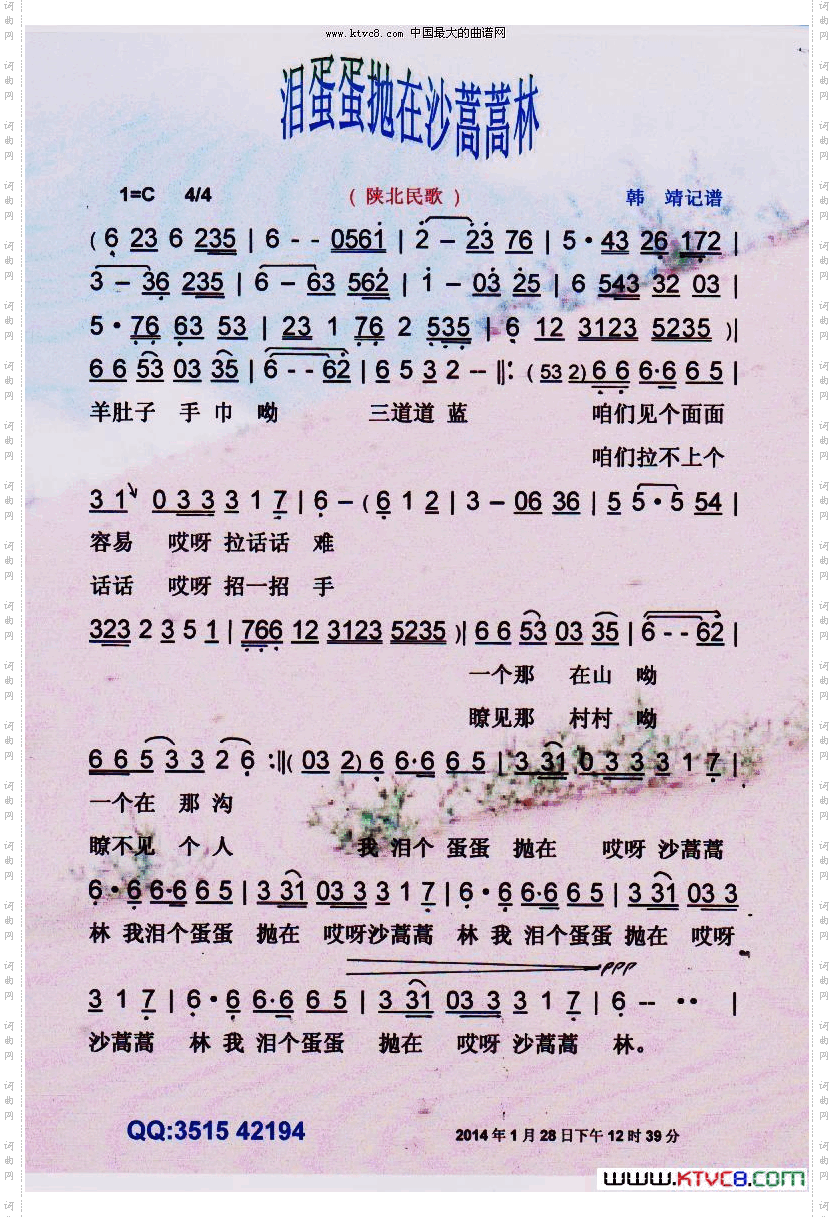 www.ktvc8.com 中国最大的曲谱网
泪蛋蛋抛在沙蒿蒿林
1=C 4/4 （陕北民歌） 韩 靖记谱
( 6 23 6 235 | 6 - - 0561 | 2 – 23 76 | 5 · 43 26 172 |
3 – 36 235 | 6 – 63 562 | 1 – 03 25 | 6 543 32 03 |
5 · 76 63 53 | 23 1 76 2 535 | 6 12 3123 5235 )|
6 6 53 03 35 | 6 - - 62 | 6 5 3 2 -- ‖: ( 53 2) 6 6 6·6 6 5 |
羊肚子 手 巾 呦 三道道 蓝 咱们见个面面
咱们拉不上个
3 1 0 3 3 3 1 7 | 6 – ( 6 1 2 | 3 – 06 36 | 5 5 · 5 54 |
容易 哎呀 拉话话 难
话话 哎呀 招一招 手
323 2 3 5 1 | 766 12 3123 5235 )| 6 6 53 03 35 | 6 - - 62 |
一个那 在山 呦
瞭见那 村村 呦
6 6 5 3 3 2 6 :‖( 03 2) 6 6·6 6 5 | 3 31 0 3 3 3 1 7 |
一个在 那 沟
瞭不见 个 人 我 泪个 蛋蛋 抛在 哎呀 沙蒿蒿
6 · 6 6·6 6 5 | 3 31 03 3 3 1 7 | 6 · 6 6·6 6 5 | 3 31 03 3
林 我泪个蛋蛋 抛在 哎呀沙蒿蒿 林 我 泪个蛋蛋 抛在 哎呀
ppp
3 1 7 | 6 · 6 6·6 6 5 | 3 31 03 3 3 1 7 | 6 -- ·· |
沙蒿蒿 林 我 泪个蛋蛋 抛在 哎呀 沙蒿蒿 林。
QQ:3515 42194
2014年1月28日下午12时39分
www.KTVC8.com